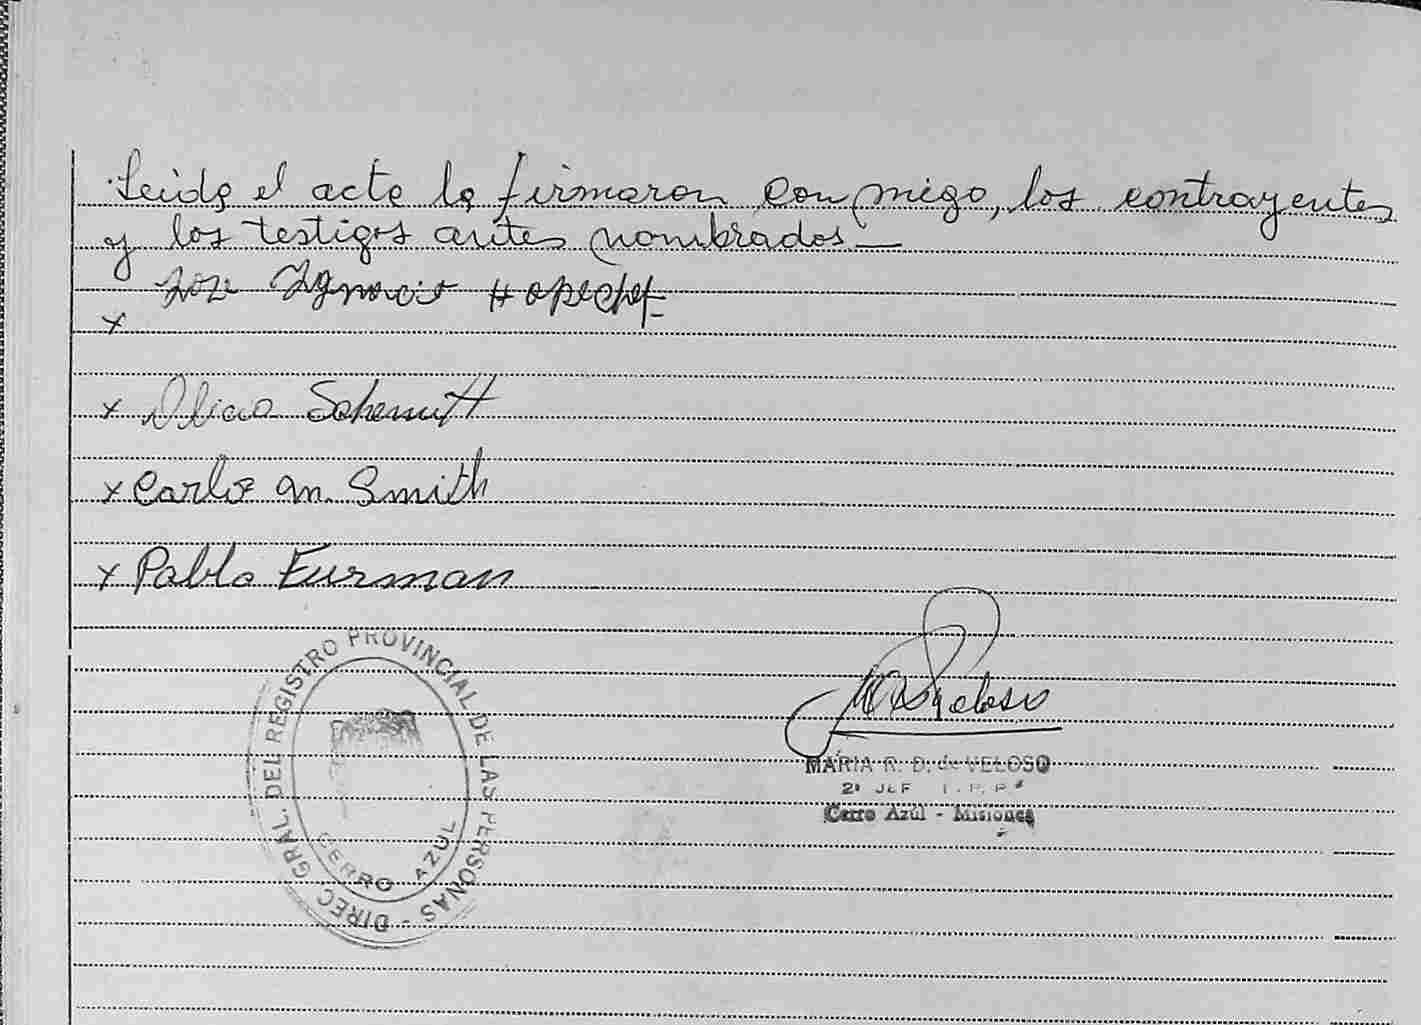 Leida el acta la firmaron conmigo, los contrayentes
y los testigos antes nombrados.—
José Ignacio
x
x Schemitt
x Carlos M. Smith
x Pablo Furman
DIREC. GRAL. DEL REGISTRO PROVINCIAL DE LAS PERSONAS -
CERRO AZUL
Veloso
MARIA R. D. de VELOSO
2ª JEF
Cerro Azúl - Misiones